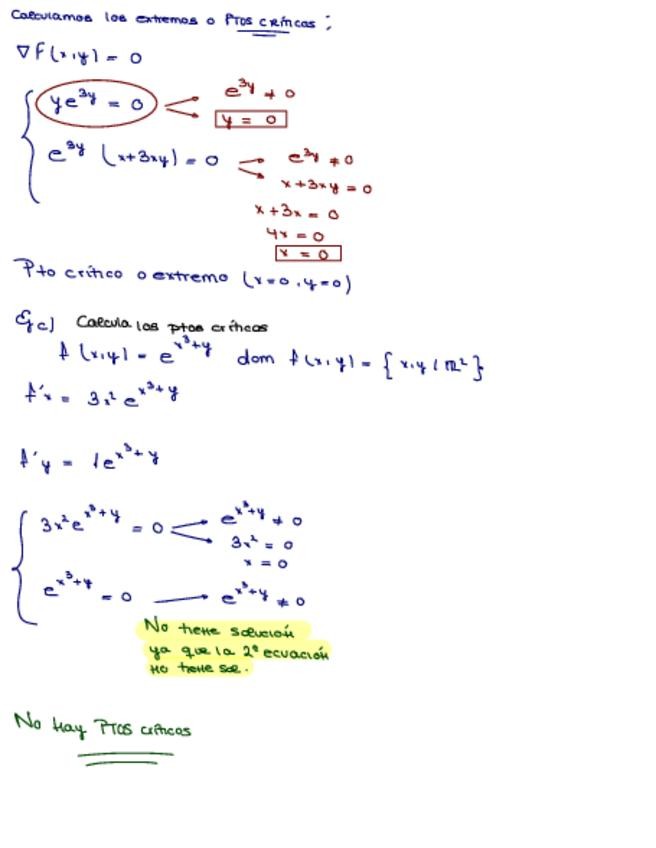 Calculamos los extremos o Ptos críticos :
∇ f(x,y) = 0
ye^{3y} = 0 e^{3y} ≠ 0
y = 0
e^{3y} (x+3xy) = 0 e^{3y} ≠ 0
x+3xy = 0
x+3x = 0
4x = 0
x = 0
Pto crítico o extremo (x=0, y=0)
Ej c) Calcula los ptos críticos
f(x,y) = e^{x³+y} dom f(x,y) = { x,y / ℝ² }
f'x = 3x² e^{x³+y}
f'y = 1e^{x³+y}
3x²e^{x³+y} = 0 e^{x³+y} ≠ 0
3x² = 0
x = 0
e^{x³+y} = 0 e^{x³+y} ≠ 0
No tiene solución
ya que la 2ª ecuación
no tiene sol.
No Hay Ptos críticos